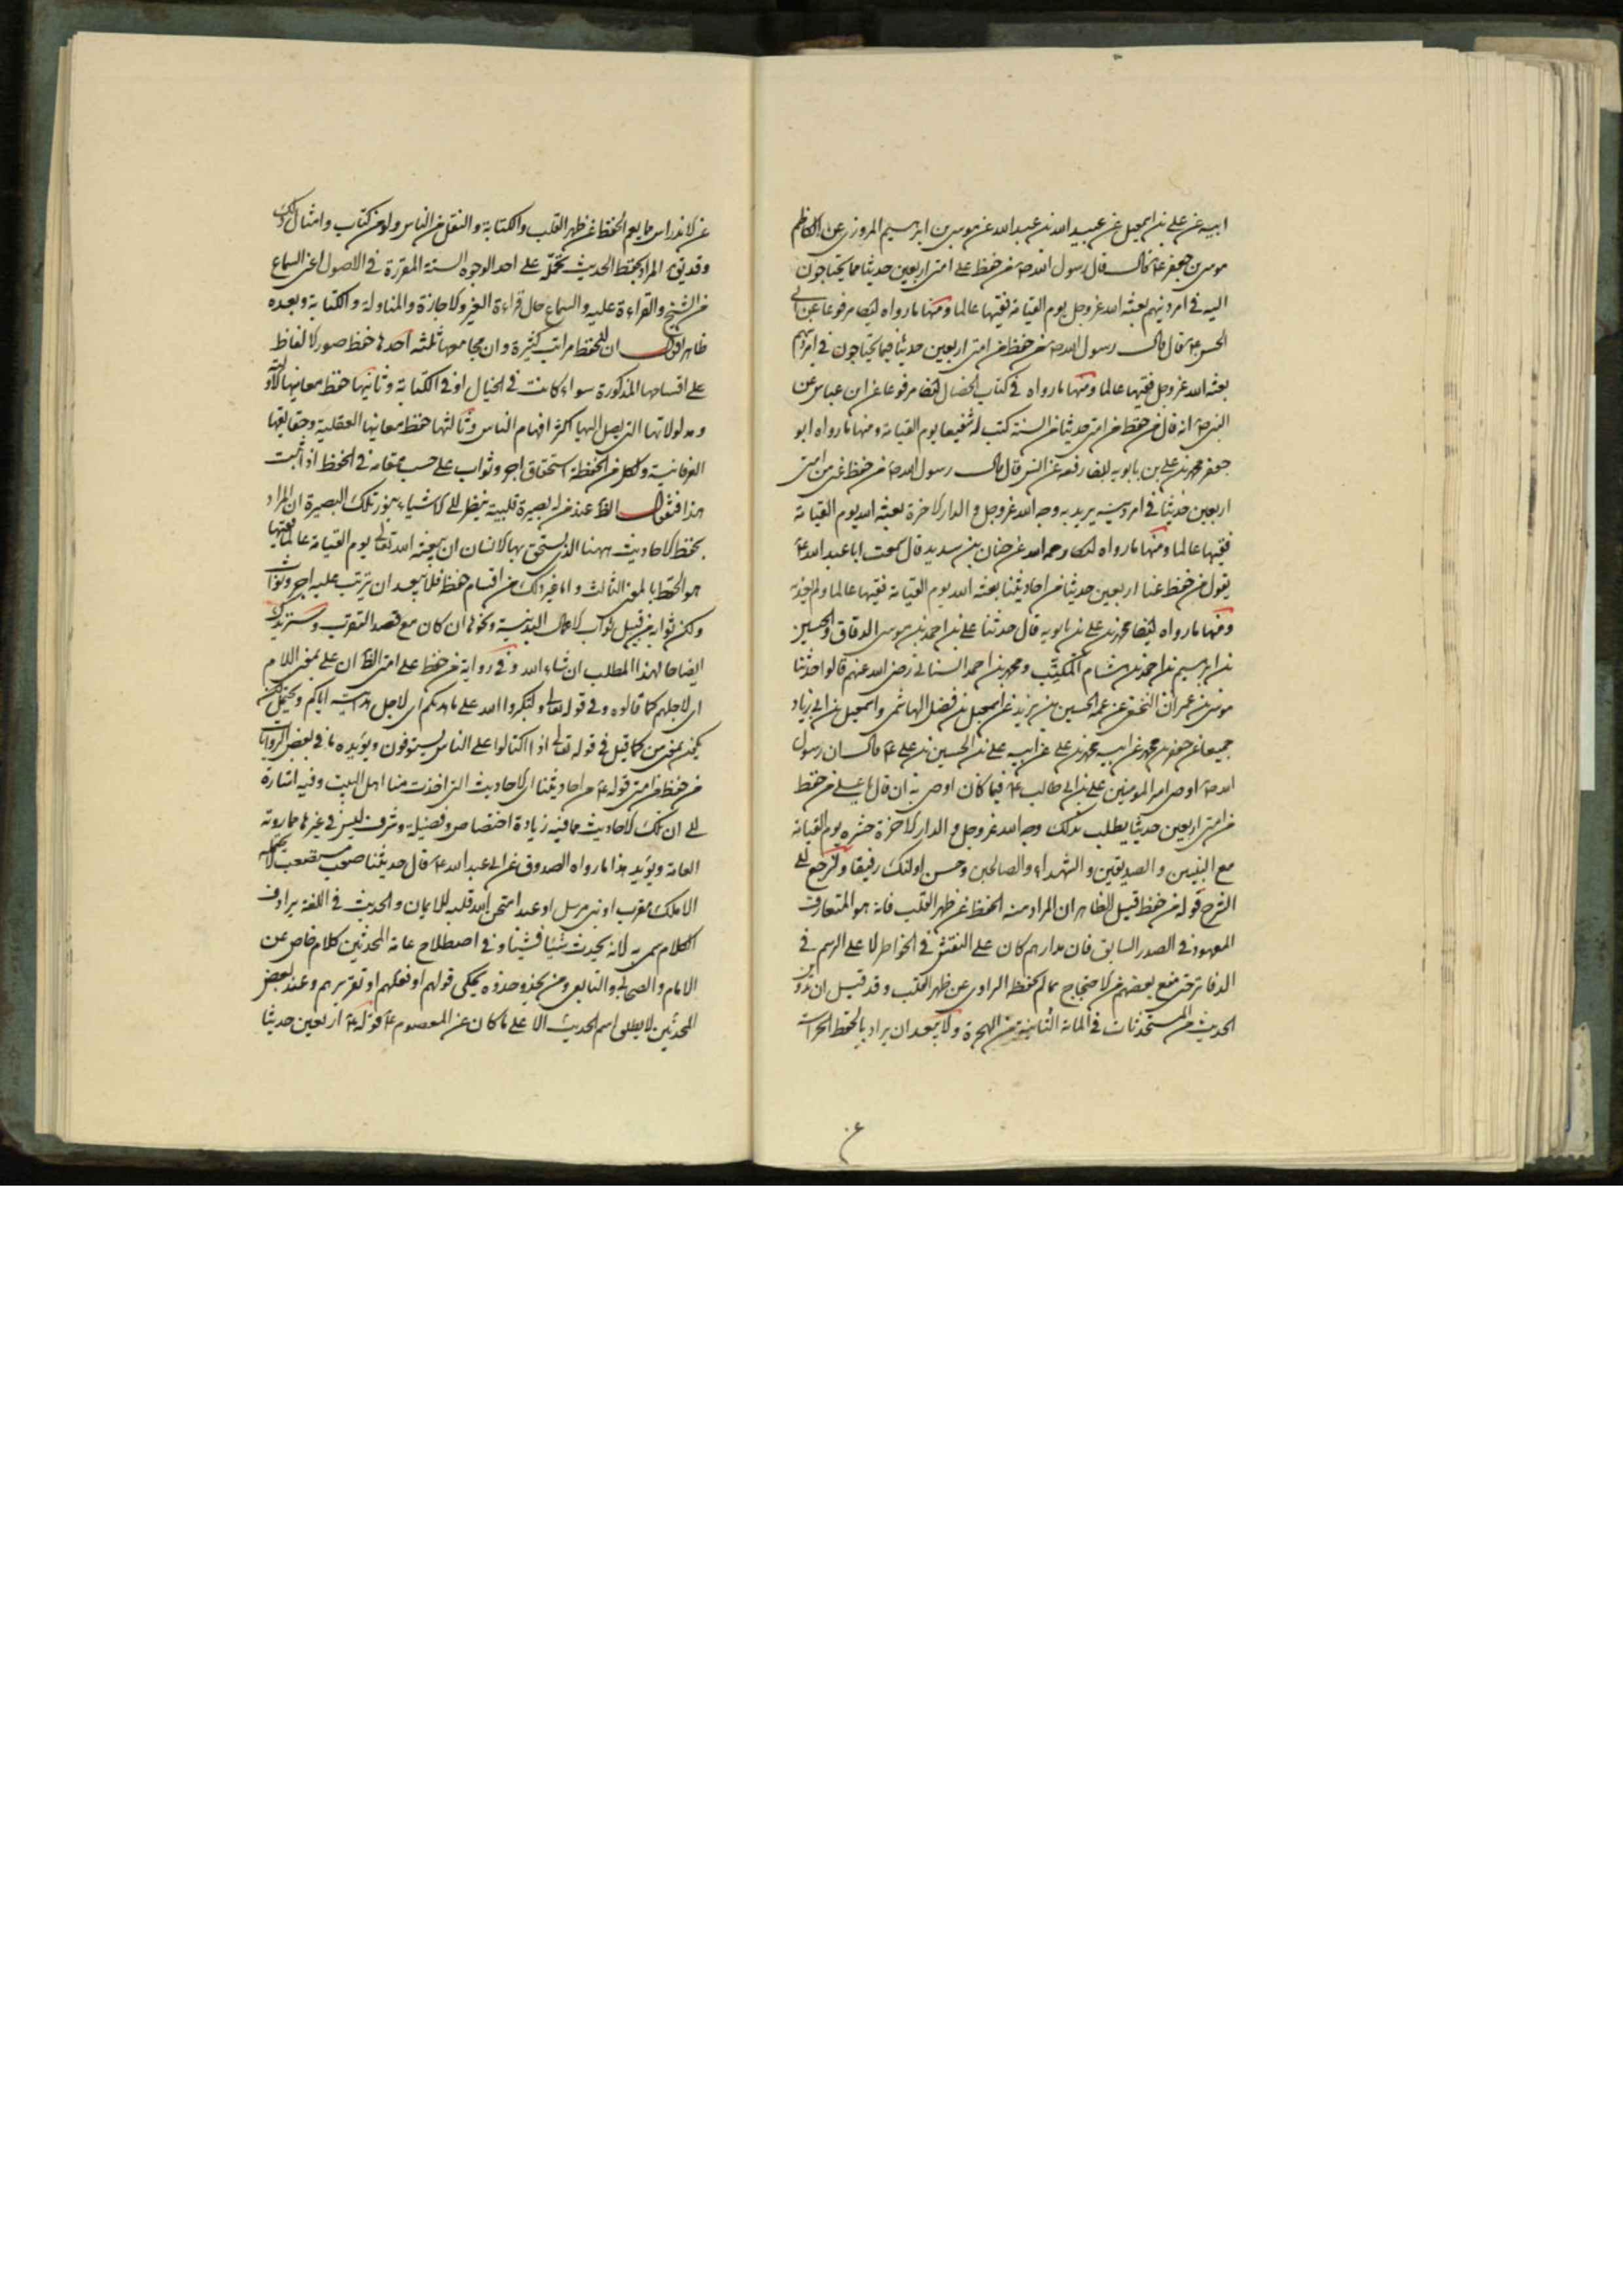 ابيه عن علي بن اسمعيل عن عبيد الله بن عبد الله عن موسى بن ابرهيم المروزي عن الكاظم
موسى بن جعفر ع قال قال رسول الله ص من حفظ على امتي اربعين حديثا مما يحتاجون
اليه في امر دينهم بعثه الله عز وجل يوم القيامة فقيها عالما ومنها ما رواه ايضا مرفوعا عن ابي
الحسن ع قال قال رسول الله ص من حفظ من امتي اربعين حديثا فيما يحتاجون في امر دينهم
بعثه الله عز وجل فقيها عالما ومنها ما رواه في كتاب الخصال ايضا مرفوعا عن ابن عباس عن
النبي ص انه قال من حفظ من امتي حديثا من السنة كتب له شفيعا يوم القيامة ومنها ما رواه ابو
جعفر محمد بن علي بن بابويه ايضا رفعه عن انس قال قال رسول الله ص من حفظ عني من امتي
اربعين حديثا في امر دينه يريد به وجه الله عز وجل والدار الاخرة بعثه الله يوم القيامة
فقيها عالما ومنها ما رواه ايضا رحمه الله عن حنان بن سدير قال سمعت ابا عبد الله ع
يقول من حفظ عنا اربعين حديثا من احاديثنا بعثه الله يوم القيامة فقيها عالما ولم يعذبه
ومنها ما رواه ايضا محمد بن علي بن بابويه قال حدثنا علي بن احمد بن موسى الدقاق والحسين
بن ابرهيم بن احمد بن هشام المكتب ومحمد بن احمد السناني رضي الله عنهم قالوا حدثنا
موسى بن عمران النخعي عن عمه الحسين بن يزيد عن اسمعيل بن فضل الهاشمي واسمعيل بن ابي زياد
جميعا عن جعفر بن محمد عن ابيه محمد بن علي عن ابيه علي بن الحسين بن علي ع قال ان رسول
الله ص اوصى امير المؤمنين علي بن ابي طالب ع فيما كان اوصى به ان قال يا علي من حفظ
من امتي اربعين حديثا يطلب بذلك وجه الله عز وجل والدار الاخرة حشره يوم القيامة
مع النبيين والصديقين والشهداء والصالحين وحسن اولئك رفيقا ولنرجع الى
الشرح قوله من حفظ قيل الظاهر ان المراد منه الحفظ عن ظهر القلب فانه هو المتعارف
المعهود في الصدر السابق فان مدارهم كان على النقش في الخواطر لا على الرسم في
الدفاتر حتى منع بعضهم من الاحتجاج بما لم يحفظه الراوي عن ظهر القلب وقد قيل ان تدوين
الحديث من المستحدثات في المائة الثانية من الهجرة ولا يبعد ان يراد بالحفظ الحراسة
عن
عن الاندراس مما يعم الحفظ عن ظهر القلب والكتابة والنقل من الناس ولو من كتاب وامثال ذلك
وقد يق المراد بحفظ الحديث تحمله على احد الوجوه الستة المقررة في الاصول اعني السماع
من الشيخ والقراءة عليه والسماع حال قراءة الغير والاجازة والمناولة والكتابة وبعده
ظاهر نقول ان للحفظ مراتب كثيرة وان مجامعها ثلثة احدها حفظ صور الالفاظ
على اقسامها المذكورة سواء كانت في الخيال او في الكتابة وثانيها حفظ معانيها الاولية
ومدلولاتها التي يصل اليها اكثر افهام الناس وثالثها حفظ معانيها العقلية وحقايقها
العرفانية ولكل من الحفظة استحقاق اجر وثواب على حسب مقامه في الحفظ اذا ثبت
هذا فنقول الظ عند من له بصيرة قلبية ينظر الى الاشياء بنور تلك البصيرة ان المراد
بحفظ الاحاديث ههنا الذي يستحق بها الانسان ان يبعثه الله تعالى يوم القيامة عالما فقيها
هو الحفظ بالمعنى الثالث واما غير ذلك من اقسام حفظ فلا يبعد ان يترتب عليه اجر وثواب
ولكن ثوابه من قبيل ثواب الاعمال البدنية ونحوها ان كان مع قصد التقرب وسنزيدك
ايضاحا لهذا المطلب ان شاء الله وفي رواية من حفظ على امتي الظ ان على بمعنى اللام
اي لاجلهم كما قالوه في قوله تعالى ولتكبروا الله على ما هديكم اي لاجل هدايته اياكم ويحتمل ان
يكون بمعنى من كما قيل في قوله تعالى اذا اكتالوا على الناس يستوفون ويؤيده ما في بعض الروايات
من حفظ من امتي قوله ع من احاديثنا اي الاحاديث التي اخذت منا اهل البيت وفيه اشارة
الى ان تلك الاحاديث مما فيه زيادة اختصاص وفضيلة وشرف ليس في غيرها مما روته
العامة ويؤيد هذا ما رواه الصدوق عن ابي عبد الله ع قال حديثنا صعب مستصعب لا يحتمله
الا ملك مقرب او نبي مرسل او عبد امتحن الله قلبه للايمان والحديث في اللغة يرادف
الكلام سمي به لانه يحدث شيئا فشيئا وفي اصطلاح عامة المحدثين كلام خاص عن
الامام والصحابي والتابعي ومن يحذو حذوه يحكى قولهم او فعلهم او تقريرهم وعند بعض
المحدثين لا يطلق اسم الحديث الا على ما كان عن المعصوم ع قوله ع اربعين حديثا